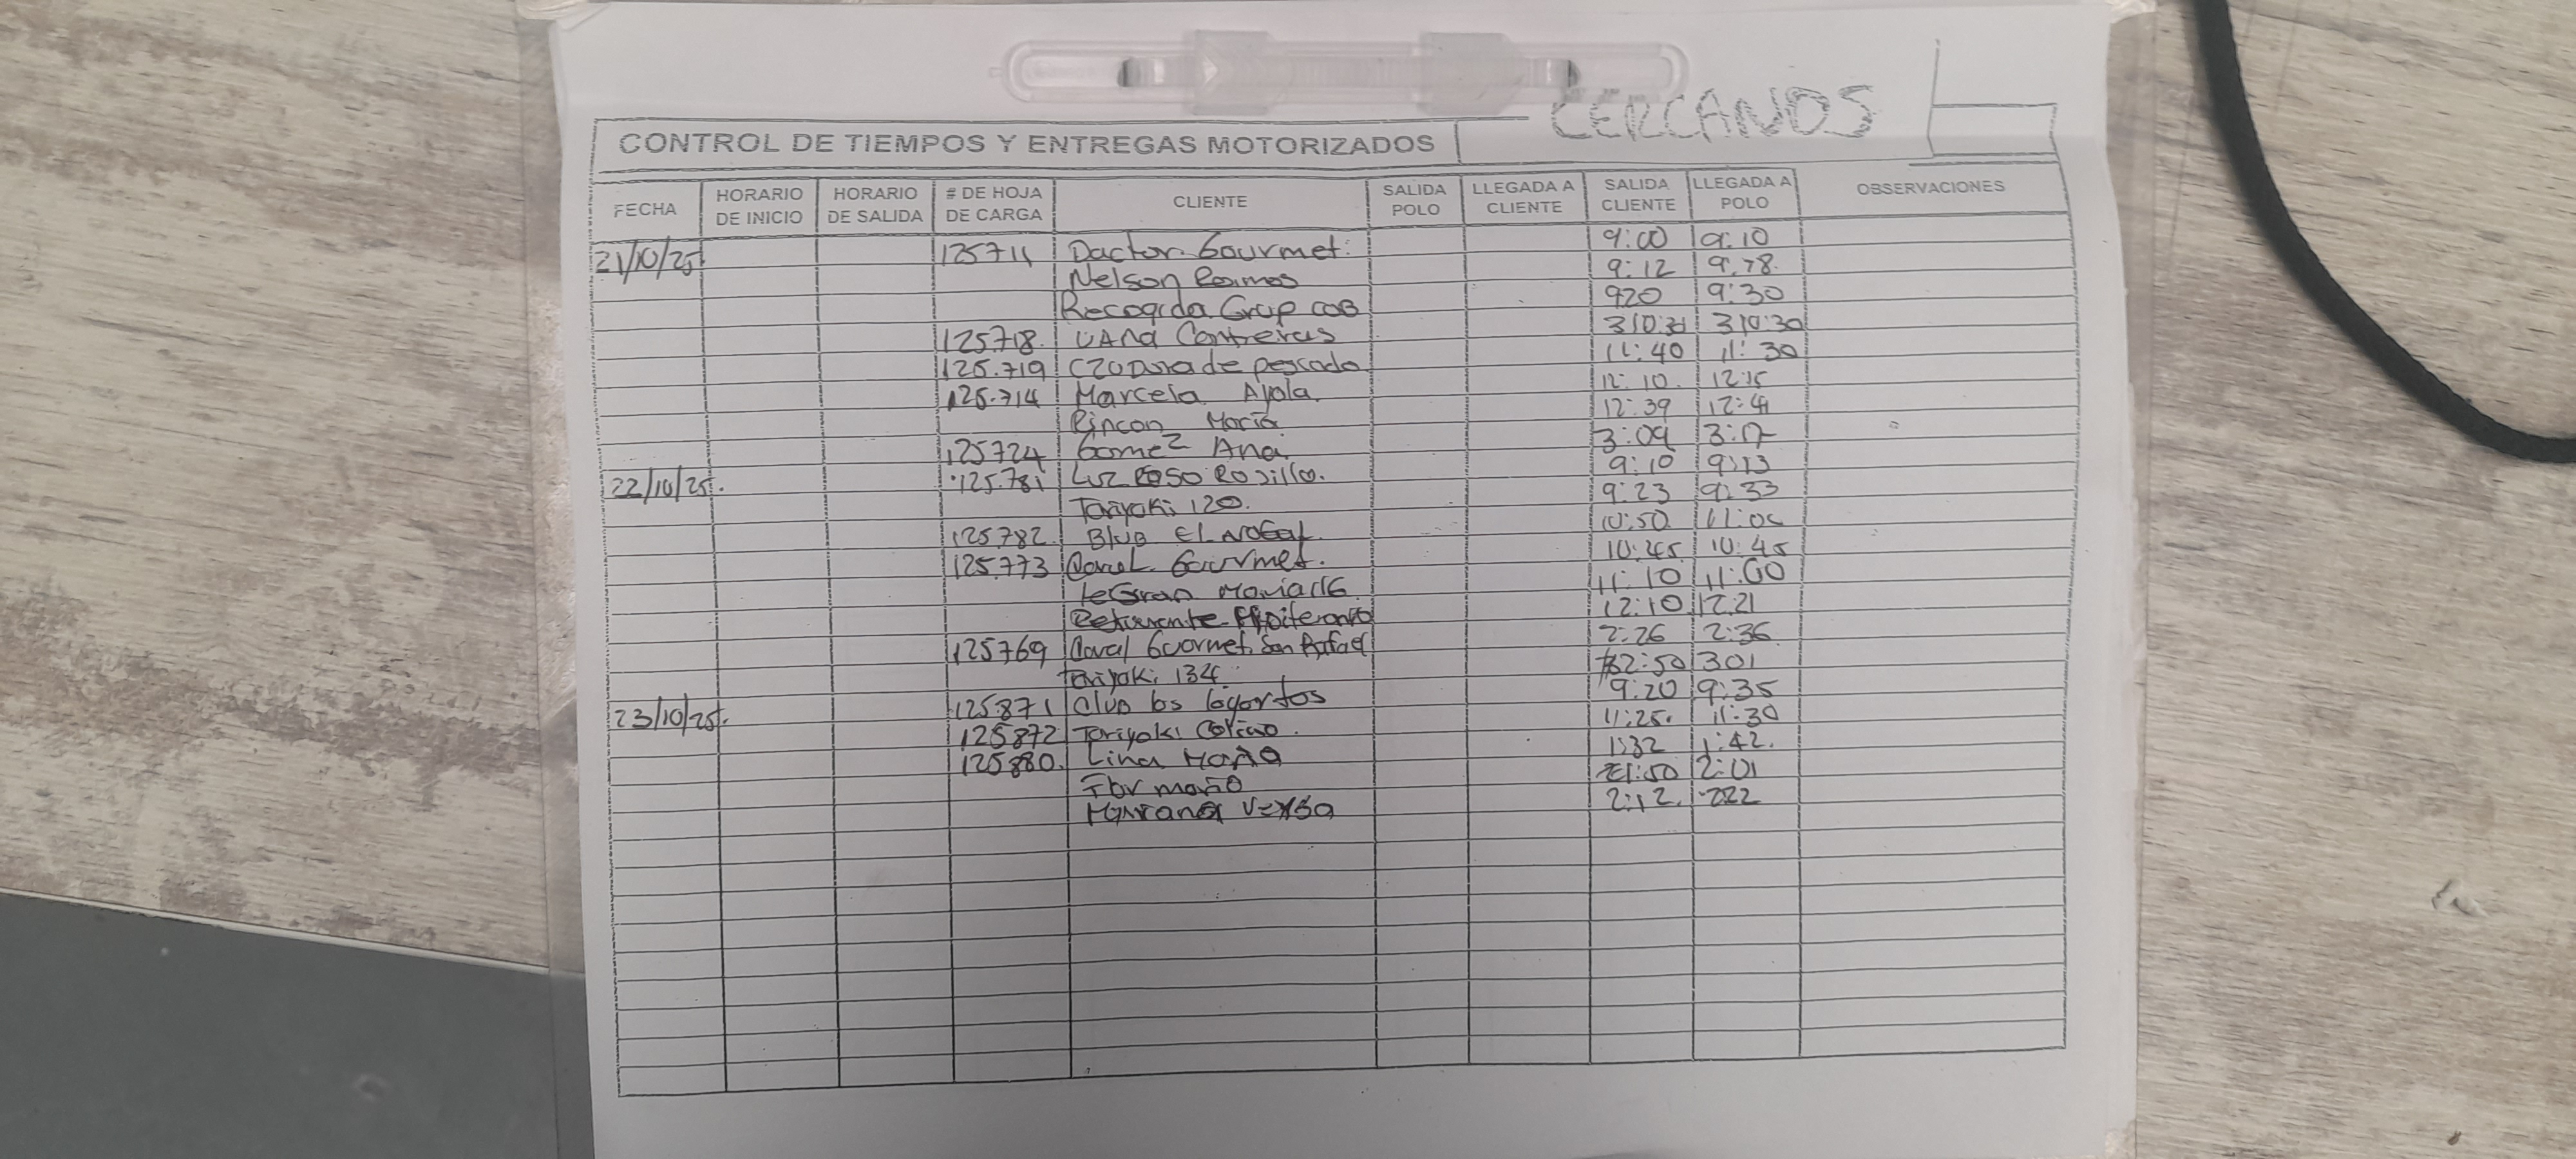 CERCANOS
CONTROL DE TIEMPOS Y ENTREGAS MOTORIZADOS
FECHA HORARIO DE INICIO HORARIO DE SALIDA # DE HOJA DE CARGA CLIENTE SALIDA POLO LLEGADA A CLIENTE SALIDA CLIENTE LLEGADA A POLO OBSERVACIONES
21/10/25 125711 Doctor Gourmet. 9:00 9:10
Nelson Ramos 9:12 9:18.
Recogida Grup COB 920 9:30
125.718. Contreras
125.719 de pescado 11:40 11:30
125.714 Marcela Ayola. 12:10. 12:15
Rincon Maria 12:39 12:41
125724 Gomez Ana. 3:09 3:17
22/10/25. 125.781 Luz Rosillo. 9:10 9:13
Tariyaki 120. 9:23 9:33
125.782. Blub El Nogal. 10:50
125.773 Gourmet. 10:45 10:45
11:10 11:00
12:10 12.21
125769 Gourmet. San Rafael 2:26 2:36
Tariyaki 134. 2:50 301
23/10/25. 125.871 Club los lagartos 9:20 9:35
125872 Tariyaki 11:25. 11:30
125880. Lina 1:32 1:42.
1:50 2:01
2:12. 222